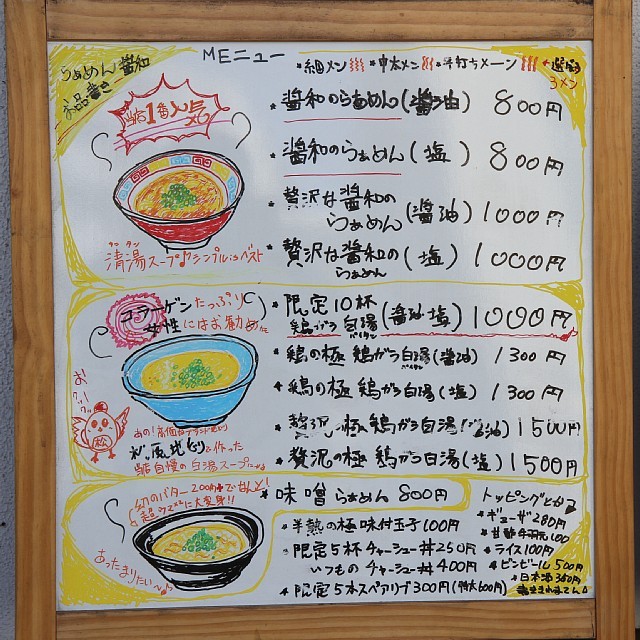 らぁめん 醤和
お品書き
MEニュー
・細メン ・中太メン ・手打ちメーン
3メン
当店1番人気
・醤和のらぁめん(醤油) 800円
・醤和のらぁめん(塩) 800円
・贅沢な醤和の
らぁめん(醤油) 1000円
・贅沢な醤和の
らぁめん(塩) 1000円
タンタン
清湯スープ♪シンプルisベスト
コラーゲンたっぷり
女性にはお勧め
・限定10杯
鶏がら白湯(醤油 塩) 1000円
パイタン
・鶏の極 鶏がら白湯(醤油) 1300円
パイタン
・鶏の極 鶏がら白湯(塩) 1300円
・贅沢の極 鶏がら白湯(醤油) 1500円
・贅沢の極 鶏がら白湯(塩) 1500円
松
あの!高価な
を作った
当店自慢の白湯スープ
幻のバター200円でなんと!
に大変身!!
あったまりたい〜♪
・味噌らぁめん 800円
・半熟の極味付玉子100円
・限定5杯チャーシュー丼250円
いつものチャーシュー丼400円
・限定5本スペアリブ300円(特大600円)
トッピングとか
・ギョーザ280円
・ライス100円
・ビンビール500円
・日本酒350円